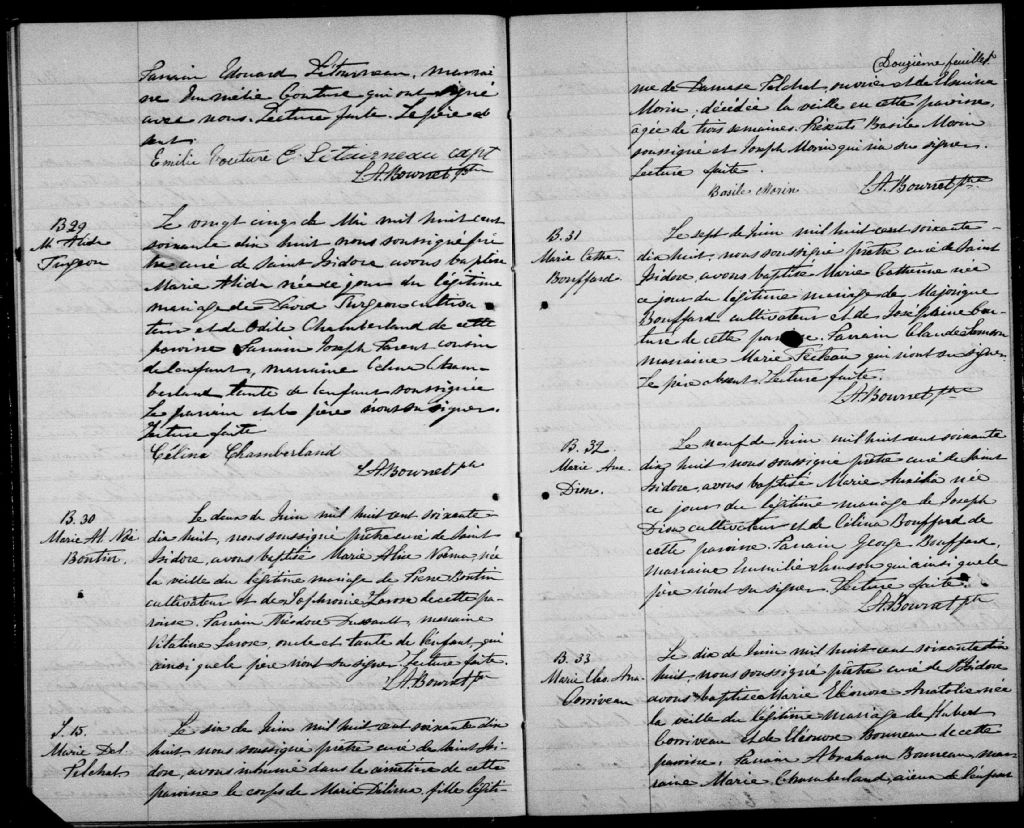 Parrain Edouard Létourneau, marrai
ne Emmélie Couture qui ont signé
avec nous. Lecture faite. Le père ab
sent
Emilie Couture E. Létourneau capt
L.A. Bournet ptre
B 29
M. Alida
Turgeon
Le vingt cinq de Mai mil huit cent
soixante dix huit nous soussigné prê
tre curé de Saint Isidore avons baptisé
Marie Alida née ce jour du légitime
mariage de David Turgeon cultiva
teur et de Odile Chamberland de cette
paroisse Parrain Joseph Parent cousin
de l'enfant, marraine Célina Cham
berland tante de l'enfant soussignée
Le parrain et le père n'ont su signer.
Lecture faite
Célina Chamberland
L.A. Bournet ptre
B. 30
Marie Al. Noé
Boutin.
Le deux de Juin mil huit cent soixante
dix huit, nous soussigné prêtre curé de Saint
Isidore, avons baptisé Marie Noéma, née
la veille du légitime mariage de Pierre Boutin
cultivateur et de Sophronie Larose de cette pa
roisse. Parrain Théodore Dussault, marraine
Vitaline Larose, oncle et tante de l'enfant, qui
ainsi que le père n'ont su signer. Lecture faite.
L.A. Bournet ptre
S. 15.
Marie Del.
Pelchat
Le six de Juin mil huit cent soixante dix
huit nous soussigné prêtre curé de Saint Isi
dore, avons inhumé dans le cimetière de cette
paroisse le corps de Marie Délima, fille légiti-
Douzième feuillet
me de Damase Pelchat, ouvrier et de Elmina
Morin, décédée la veille en cette paroisse,
agée de trois semaines. Présents Basile Morin
soussigné et Joseph Morin qui n'a su signer.
Lecture faite.
Basile Morin L.A. Bournet ptre
B. 31
Marie Cathe.
Bouffard
Le sept de Juin mil huit cent soixante-
dix huit, nous soussigné prêtre curé de Saint
Isidore, avons baptisé Marie Catherine née
ce jour du légitime mariage de Majorique
Bouffard cultivateur et de Josephine Cou
ture de cette paroisse. Parrain Claude Samson
marraine Marie Fecteau qui n'ont su signer
Le père absent. Lecture faite.
L.A. Bournet ptre
B. 32
Marie Au.
Dion.
Le neuf de Juin mil huit cent soixante
dix huit nous soussigné prêtre curé de Saint
Isidore, avons baptisé Marie née
ce jour du légitime mariage de Joseph
Dion cultivateur et de Célina Bouffard de
cette paroisse. Parrain George Bouffard,
marraine Emmélie Samson qui ainsi que le
père n'ont su signer. Lecture faite.
L.A. Bournet ptre
B. 33
Marie Eleo. Ana
Corriveau
Le dix de Juin mil huit cent soixante dix
huit, nous soussigné prêtre curé de St Isidore
avons baptisé Marie Eléonore Anatolie née
la veille du légitime mariage de Hubert
Corriveau et de Eléonore Bonneau de cette
paroisse. Parrain Abraham Bonneau, mar
raine Marie Chamberland, aieux de l'enfant